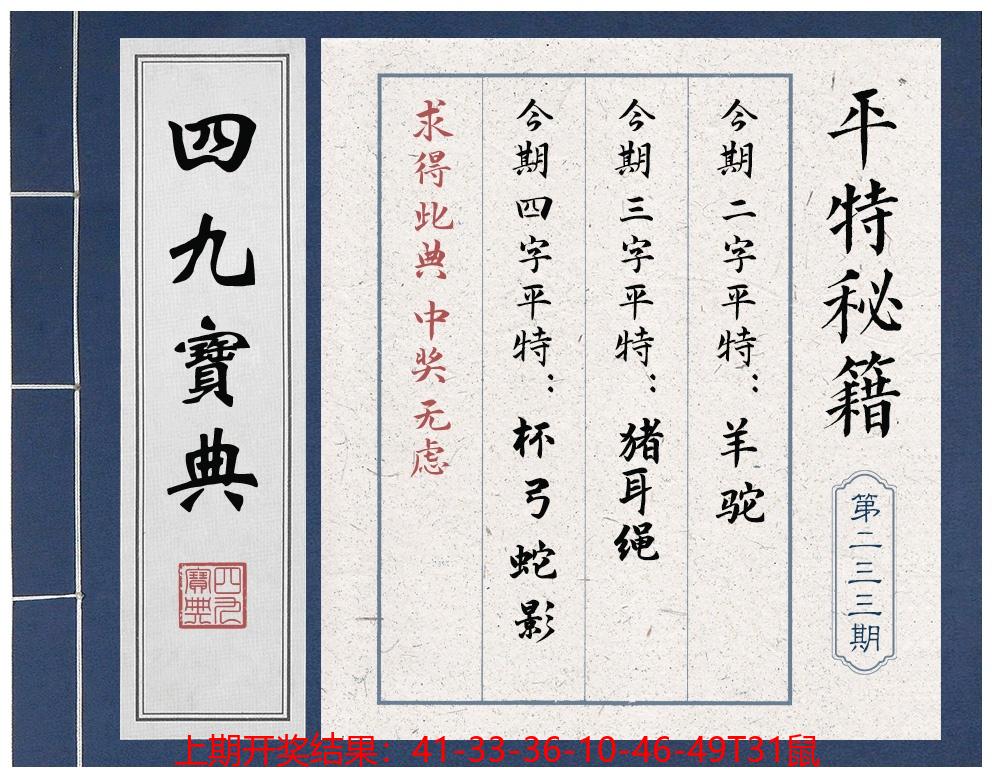 平特秘籍
第二三三期
今期二字平特：羊驼
今期三字平特：猪耳绳
今期四字平特：杯弓蛇影
求得此典 中奖无虑
四九寶典
四九寶典
上期开奖结果：41-33-36-10-46-49T31鼠